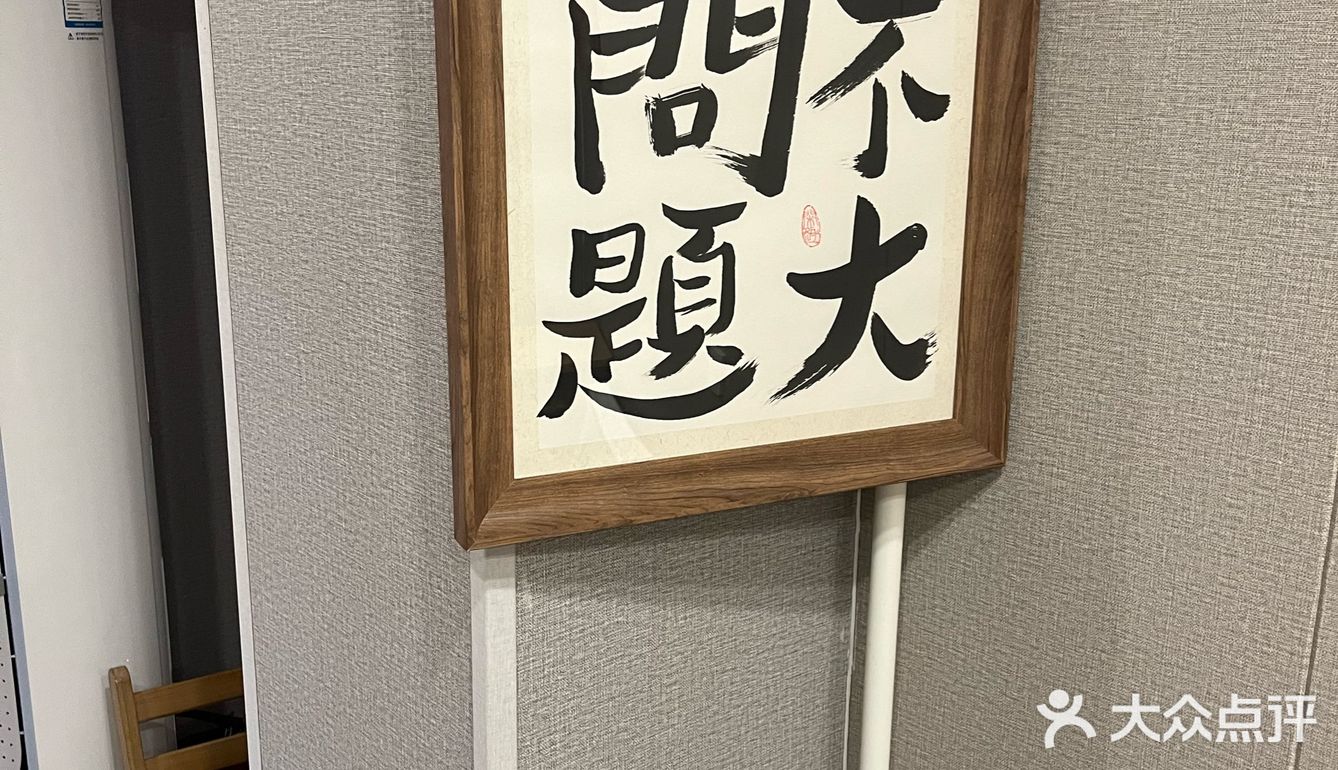 不大
問題
大众点评